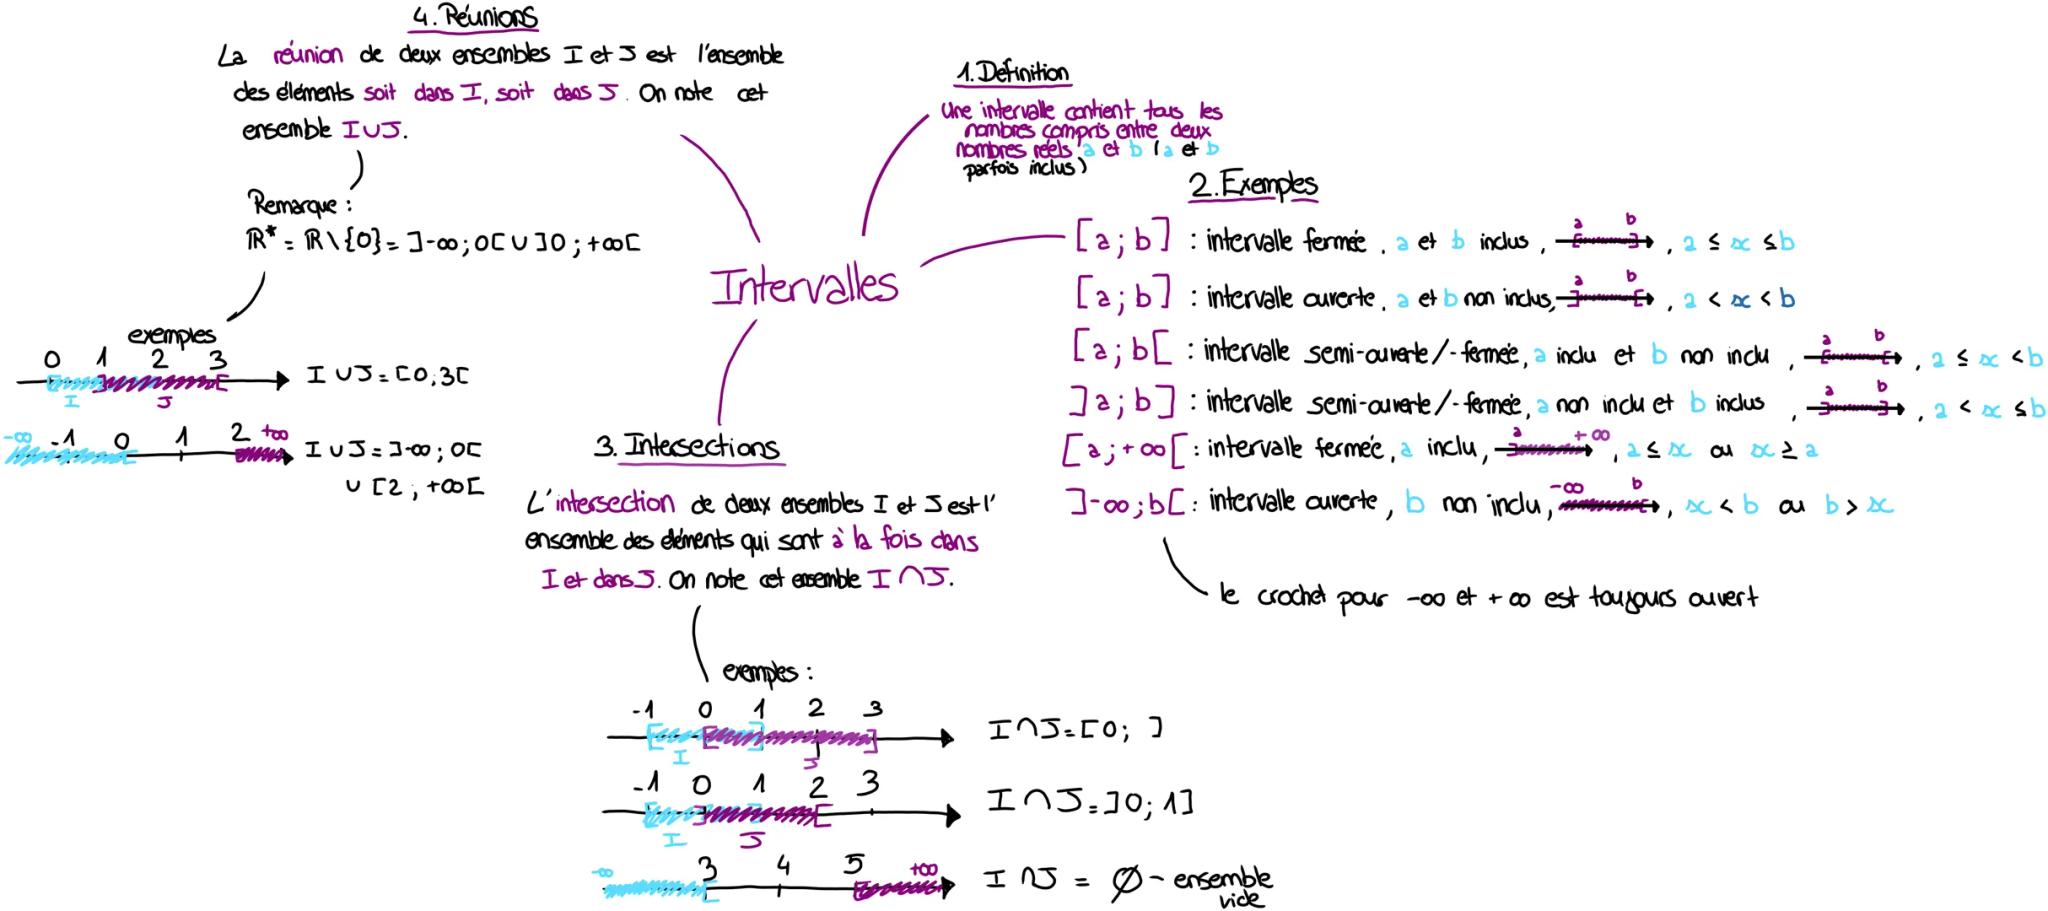 4. Réunions
La réunion de deux ensembles I et J est l'ensemble
des éléments soit dans I, soit dans J. On note cet
ensemble I∪J.
Remarque :
ℝ* = ℝ\{0} = ]-∞; 0[ ∪ ]0 ; +∞[
exemples
0 1 2 3
I ∪ J = [0; 3[
I J
-∞ -1 0 1 2 +∞
I ∪ J = ]-∞ ; 0[
∪ [2 ; +∞[
1. Définition
Une intervalle contient tous les
nombres compris entre deux
nombres réels a et b (a et b
parfois inclus)
Intervalles
2. Exemples
a b
[a ; b] : intervalle fermée, a et b inclus, , a ≤ x ≤ b
a b
[a ; b] : intervalle ouverte, a et b non inclus, , a < x < b
a b
[a ; b[ : intervalle semi-ouverte/-fermée, a inclu et b non inclu , , a ≤ x < b
a b
]a ; b] : intervalle semi-ouverte/-fermée, a non inclu et b inclus , , a < x ≤ b
a +∞
[a ; +∞[ : intervalle fermée, a inclu, , a ≤ x ou x ≥ a
-∞ b
]-∞ ; b[ : intervalle ouverte, b non inclu, , x < b ou b > x
le crochet pour -∞ et +∞ est toujours ouvert
3. Intersections
L'intersection de deux ensembles I et J est l'
ensemble des éléments qui sont à la fois dans
I et dans J. On note cet ensemble I ∩ J.
exemples :
-1 0 1 2 3
I ∩ J = [0 ; ]
I J
-1 0 1 2 3
I ∩ J = ]0 ; 1]
I J
-∞ 3 4 5 +∞
I ∩ J = ∅ - ensemble
vide